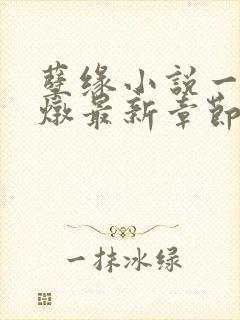 孽缘小説一
燉最新章節
一抹冰绿